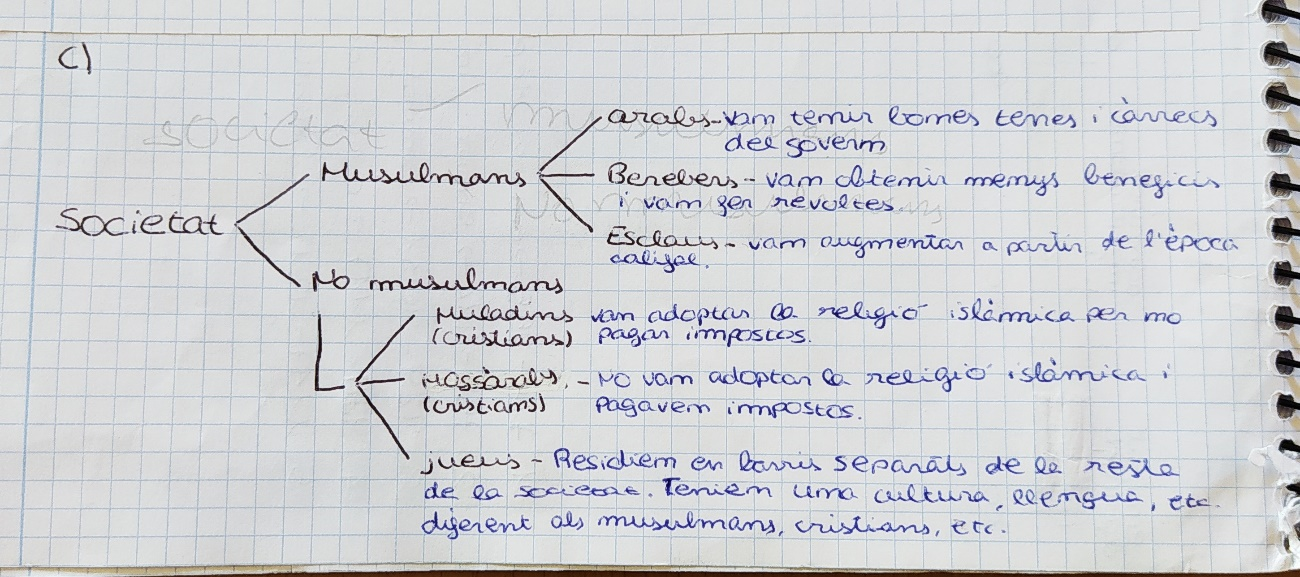 c)
Àrabs - van tenir bones terres i càrrecs
del govern
Musulmans
Berebers - van obtenir menys beneficis
i van fer revoltes.
Societat
Esclaus - van augmentar a partir de l'època
califal.
No musulmans
Muladins van adoptar la religió islàmica per no
(cristians) pagar impostos.
Mossàrabs. - No van adoptar la religió islàmica i
(cristians) pagaven impostos.
jueus - Residien en barris separats de la resta
de la societat. Tenien una cultura, llengua, etc.
diferent als musulmans, cristians, etc.